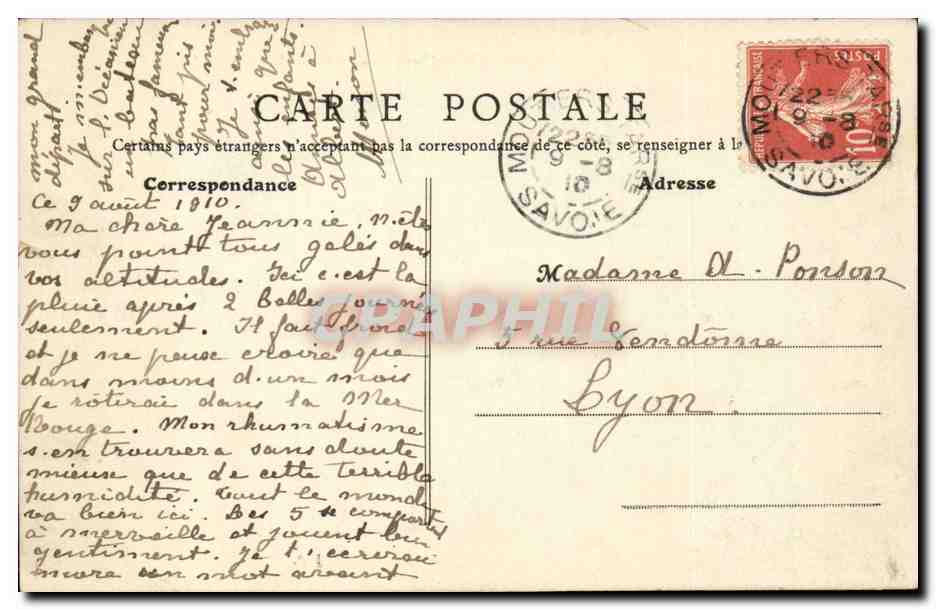 CARTE POSTALE
Certains pays étrangers n'acceptent pas la correspondance de ce côté, se renseigner à la
Correspondance
Adresse
RÉPUBLIQUE FRANÇAISE
POSTES
10
MOUTIERS
9-8
10
SAVOIE
MOUTIERS
9-8
10
SAVOIE
Ce 9 août 1910.
Ma chère Jeannie, N'êtes
vous point tous gelés dans
vos altitudes. Ici c'est la
pluie après 2 belles journées
seulement. Il fait froid
et je ne peux croire que
dans moins d'un mois
je rôtirai dans la Mer
Rouge. Mon rhumatisme
s'en trouvera sans doute
mieux que de cette terrible
humidité. Tout le monde
va bien ici. Les 5 se comportent
à merveille et jouent bien
gentiment. Je t'écrirai
encore un mot avant
mon grand
départ
Je m'embarque
sur l'Océanien
un bateau
pas fameux
tant pis
pour moi
Je t'emb
ainsi que
les enfants.
Amitiés à
Madame A. Ponson
5 rue Vendôme
Lyon.
CPAPHIL